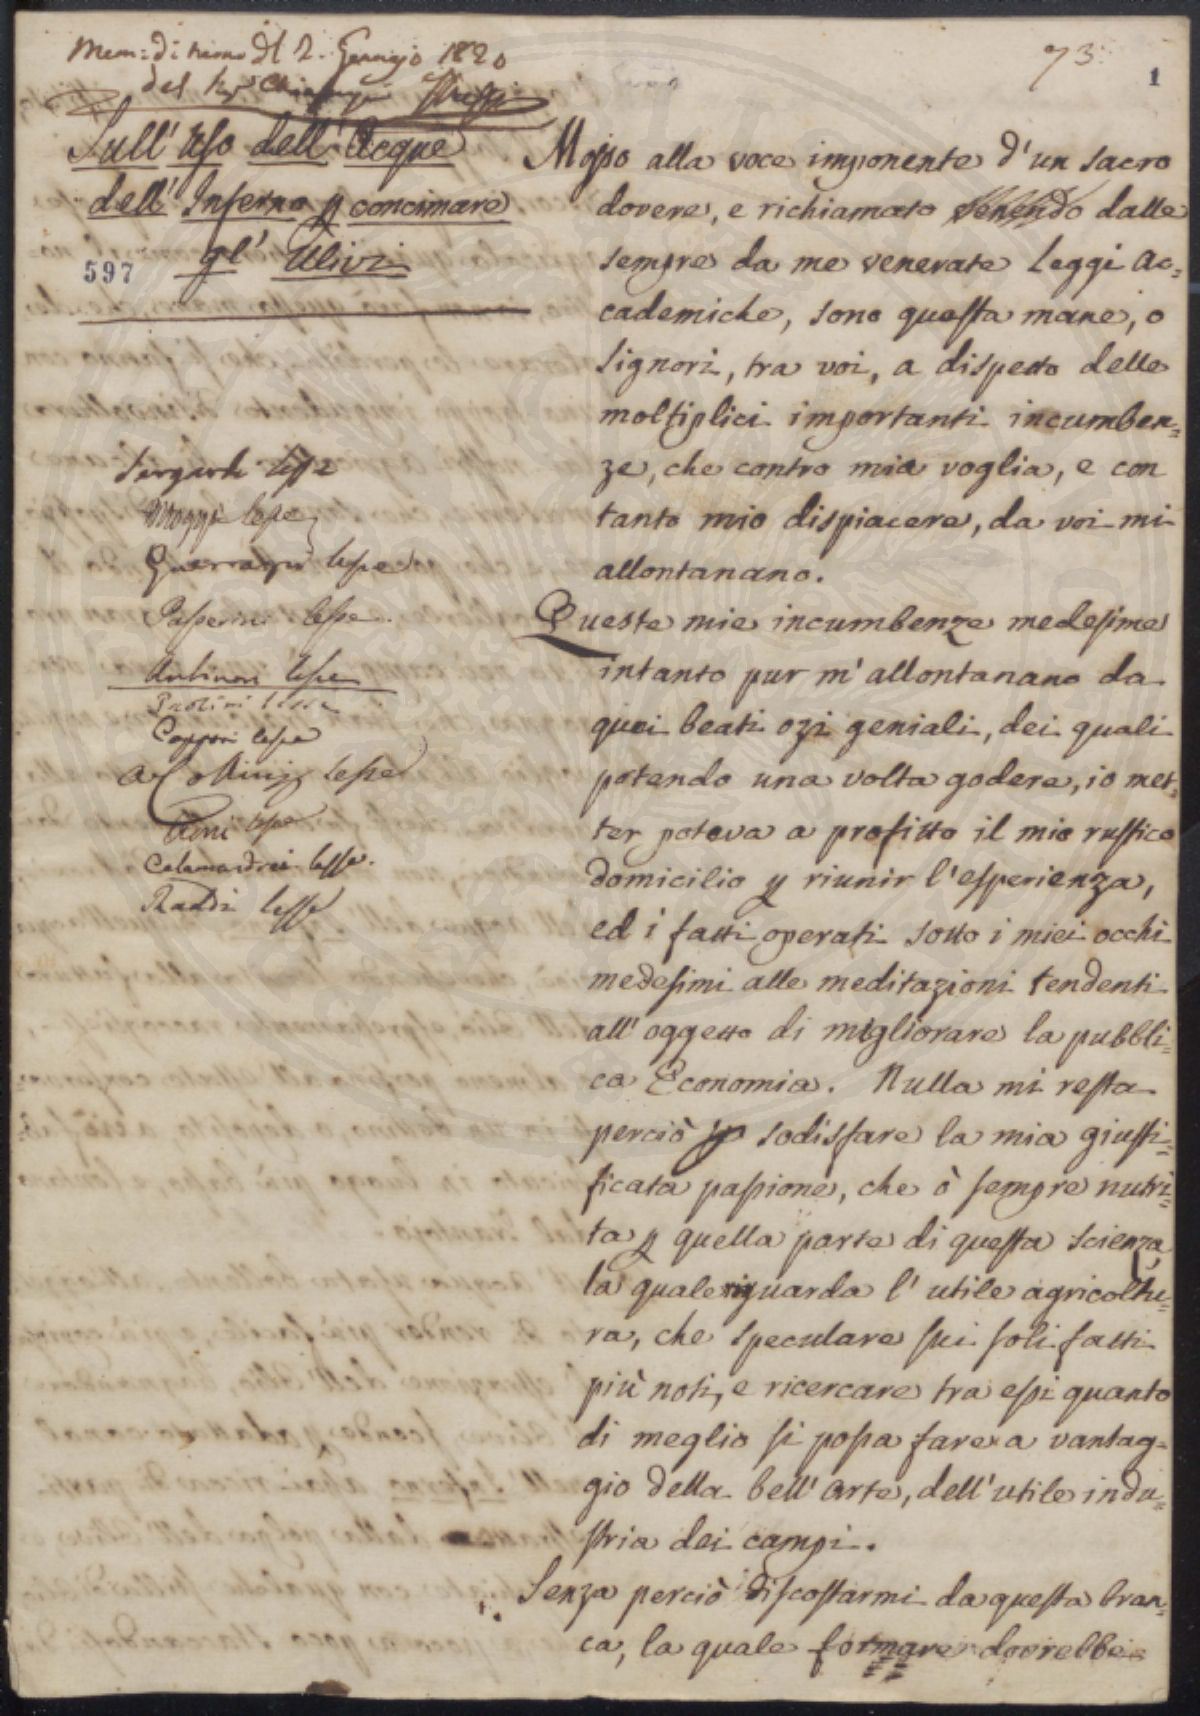 Mem: di turno del 2. Gennajo 1820
del Sig.r
73.
1
Sull' Uso dell' Acque
dell' Inferno p concimare
gl' Ulivi
597
lesse
lesse
Guerrazzi lesse
Passerini lesse.
Antinori lesse
Paolini lesse
Capponi lesse
lesse
lesse
Calamandrei lesse.
Raddi lesse
Mosso alla voce imponente d'un sacro
dovere, e richiamato venendo dalle
sempre da me venerate Leggi Ac=
cademiche, sono questa mane, o
Signori, tra voi, a dispetto delle
moltiplici importanti incumben=
ze, che contro mia voglia, e con
tanto mio dispiacere, da voi mi
allontanano.
Queste mie incumbenze medesime
intanto pur m'allontanano da
quei beati ozi geniali, dei quali
potendo una volta godere, io met=
ter poteva a profitto il mio rustico
domicilio p riunir l'esperienza,
ed i fatti operati sotto i miei occhi
medesimi alle meditazioni tendenti
all' oggetto di migliorare la pubbli=
ca Economia. Nulla mi resta
perciò p sodisfare la mia giusti=
ficata passione, che ò sempre nutri=
ta p quella parte di questa scienza,
la quale riguarda l' utile agricoltu=
ra, che speculare sui soli fatti
più noti, e ricercare tra essi quanto
di meglio si possa fare a vantag=
gio della bell' arte, dell' utile indu=
stria dei campi.
Senza perciò discostarmi da questa bran=
ca, la quale formare dovrebbe